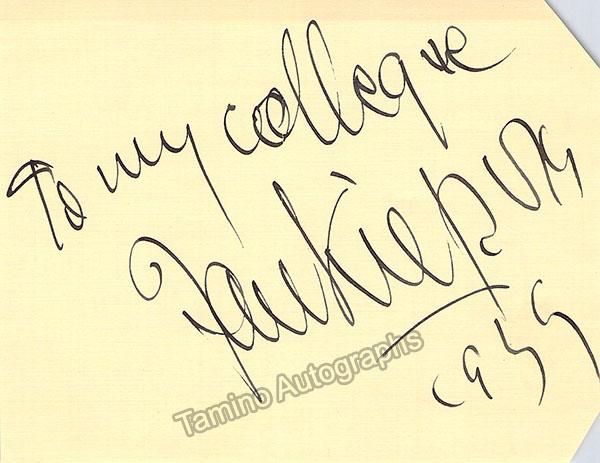 To my collegue
Jan Kiepura
Tamino Autographs